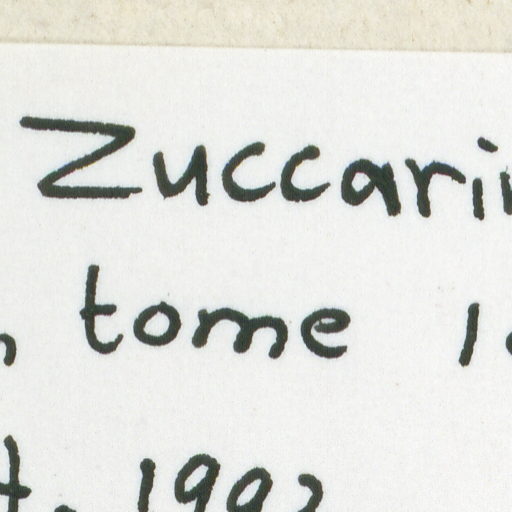 Zuccari
tome 1
t. 1992